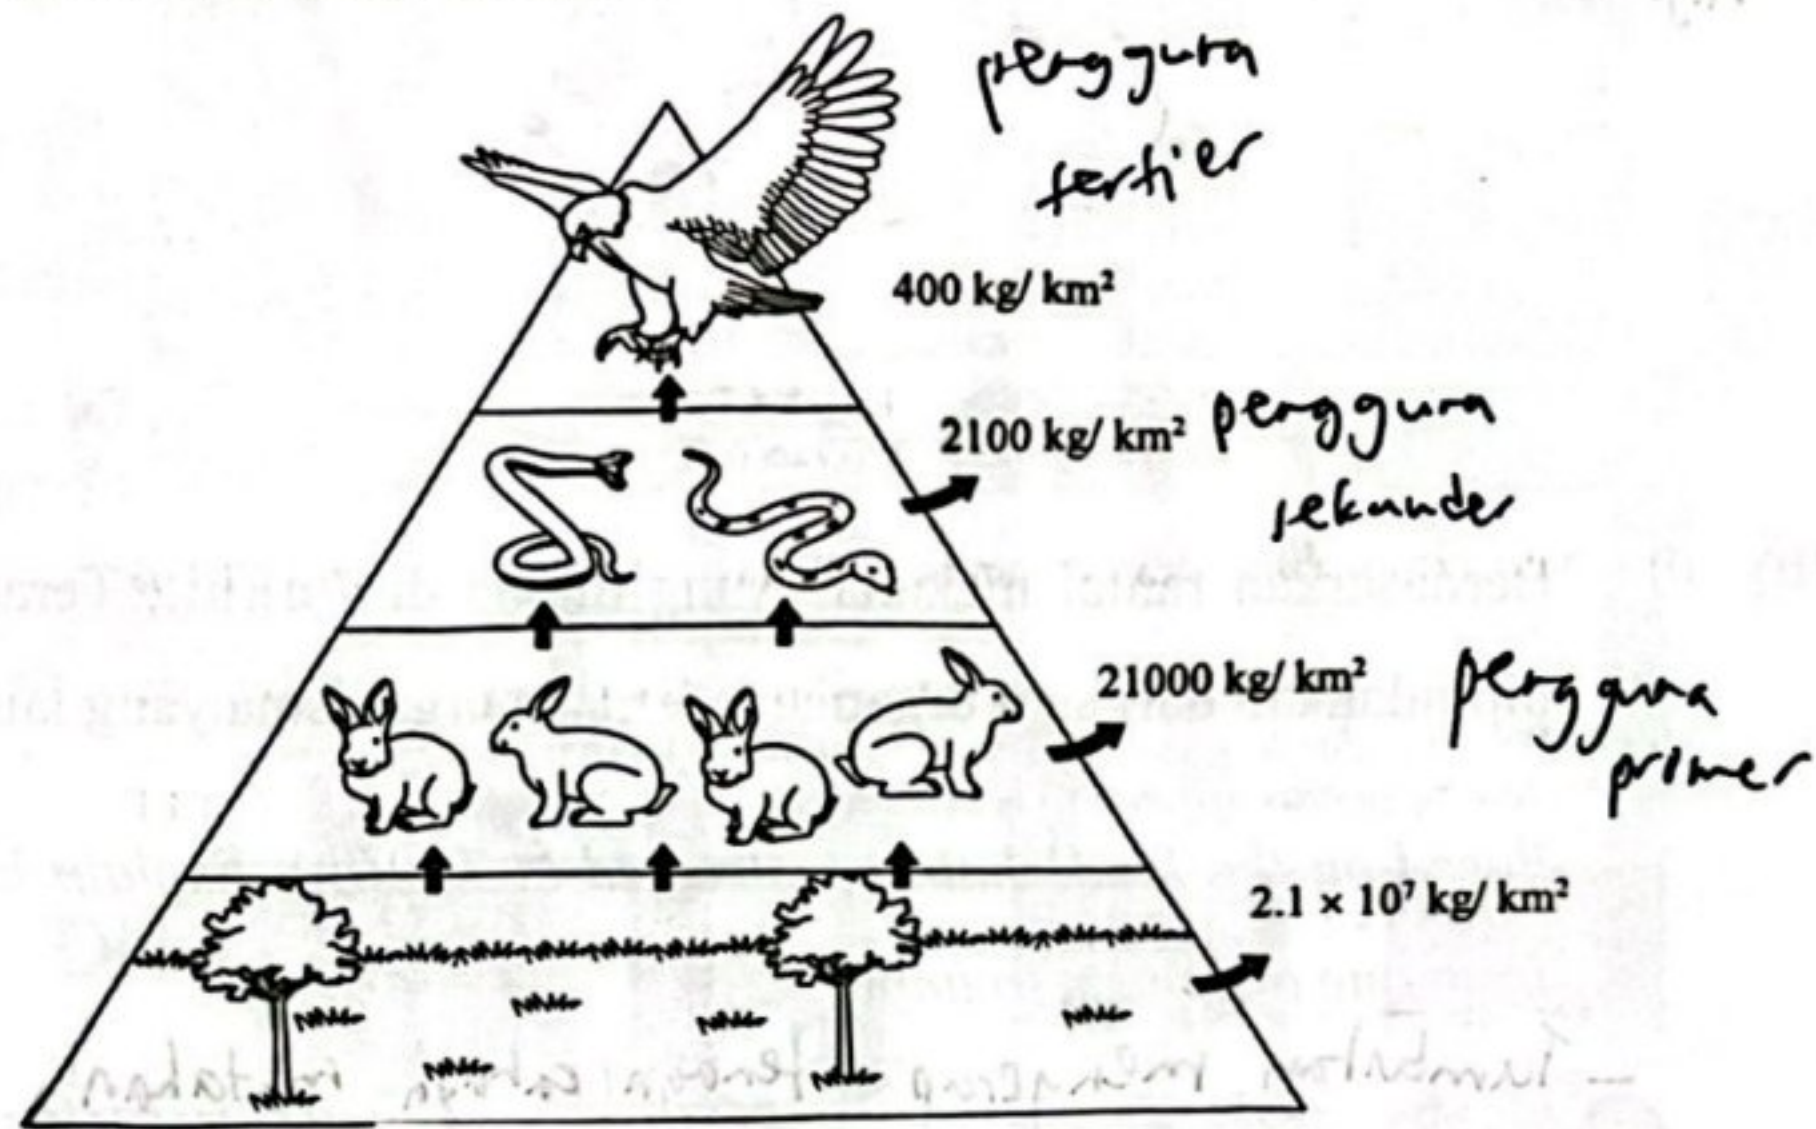 pengguna
tertier
400 kg/ km²
2100 kg/ km² pengguna
sekunder
21000 kg/ km² pengguna
primer
2.1 × 10⁷ kg/ km²